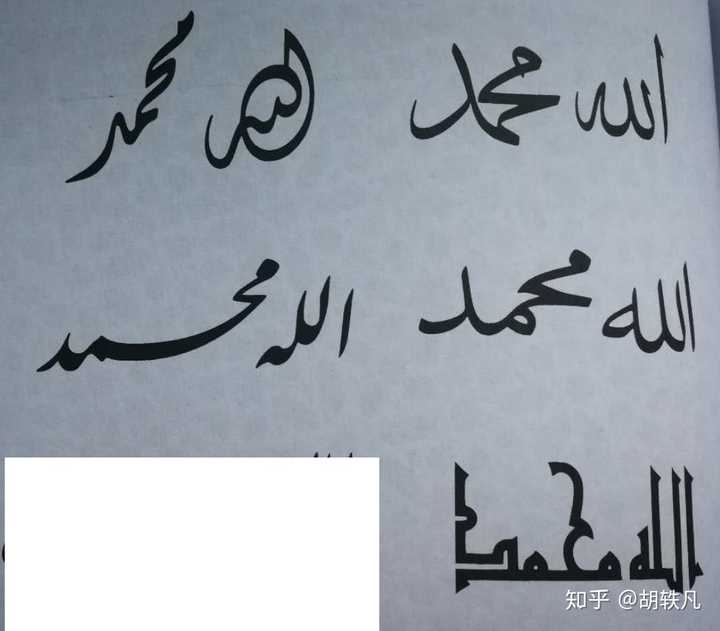 الله محمد الله محمد
الله محمد الله محمد
الله محمد
知乎 @胡轶凡